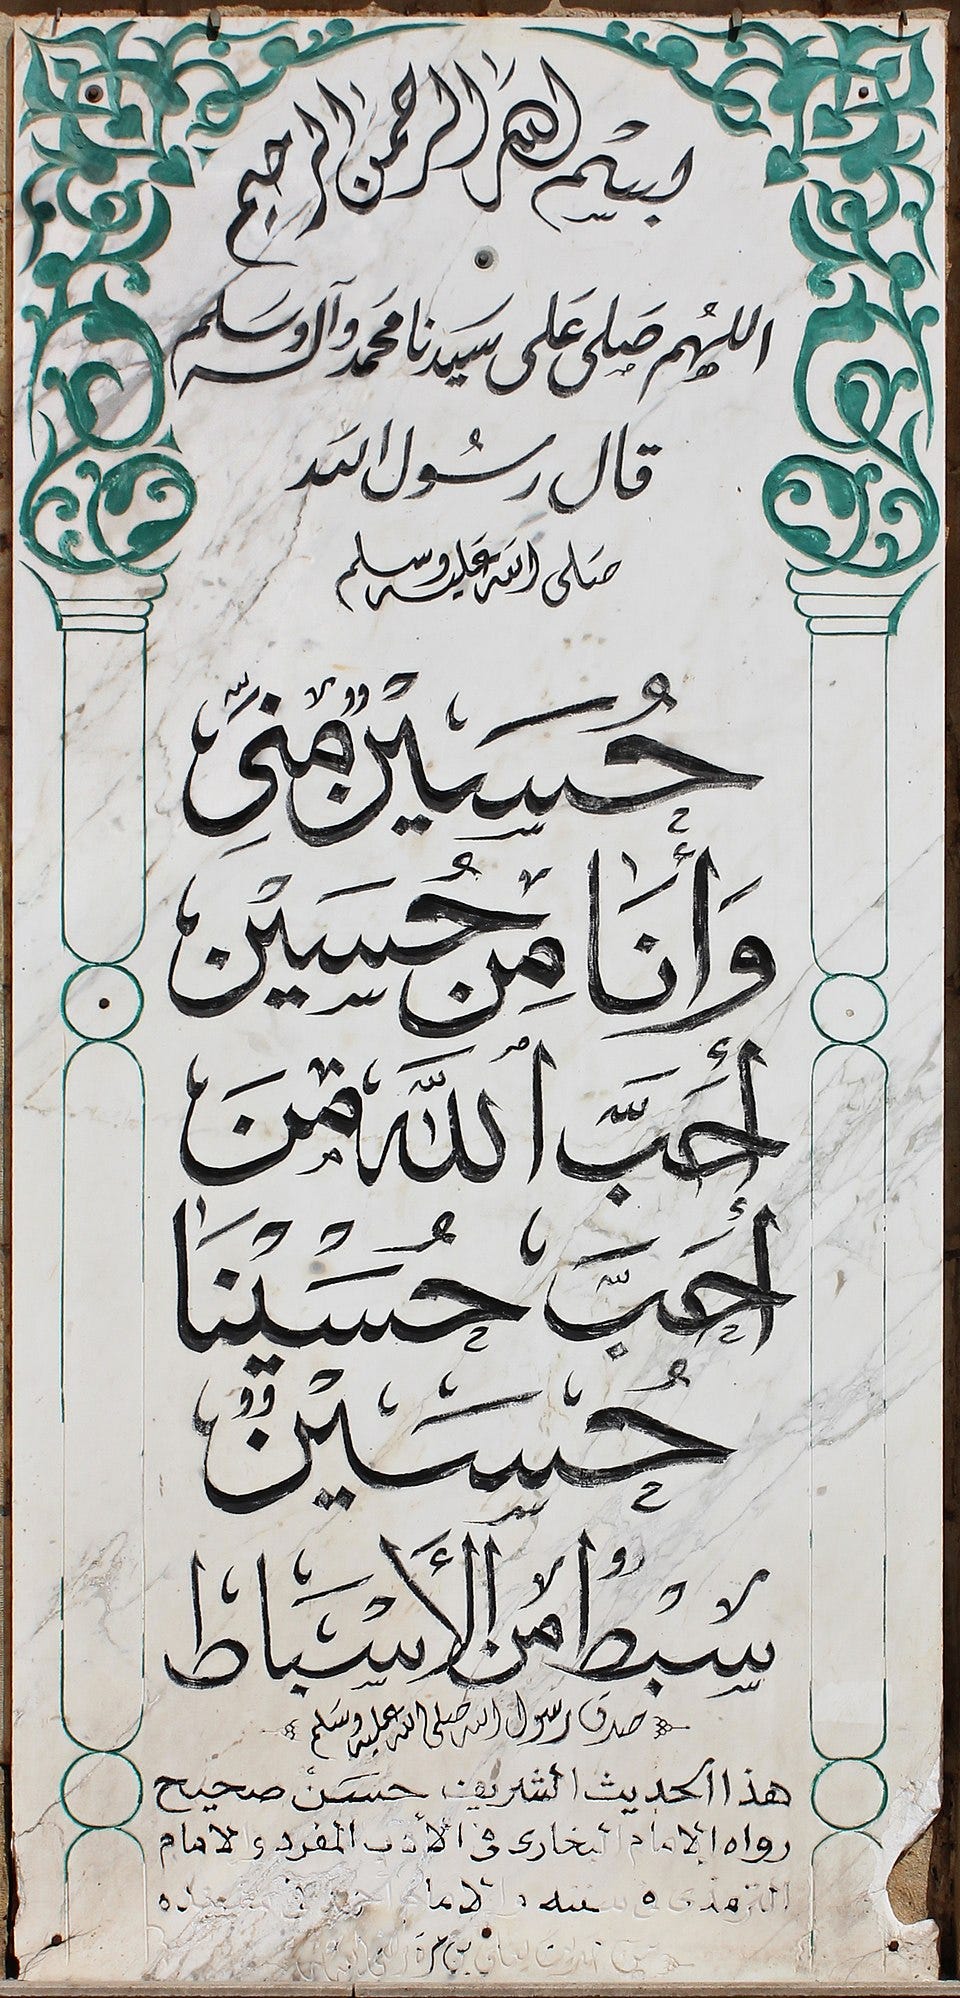 بسم الله الرحمن الرحيم
اللهم صلى على سيدنا محمد وآله وسلم
قال رسول الله
صلى الله عليه وسلم
حُسَيْنٌ مِنِّي
وَأَنَا مِن حُسَيْن
أَحَبَّ ٱللَّه مَنْ
أَحَبَّ حُسَيْنَا
حُسَيْنٌ
سِبْطٌ مِنَ الأَسْبَاط
صدق رسول الله صلى الله عليه وسلم
هذا الحديث الشريف حسن صحيح
رواه الإمام البخارى فى الأدب المفرد والامام
الترمذى فى سننه والامام احمد فى مسنده
بن مرة